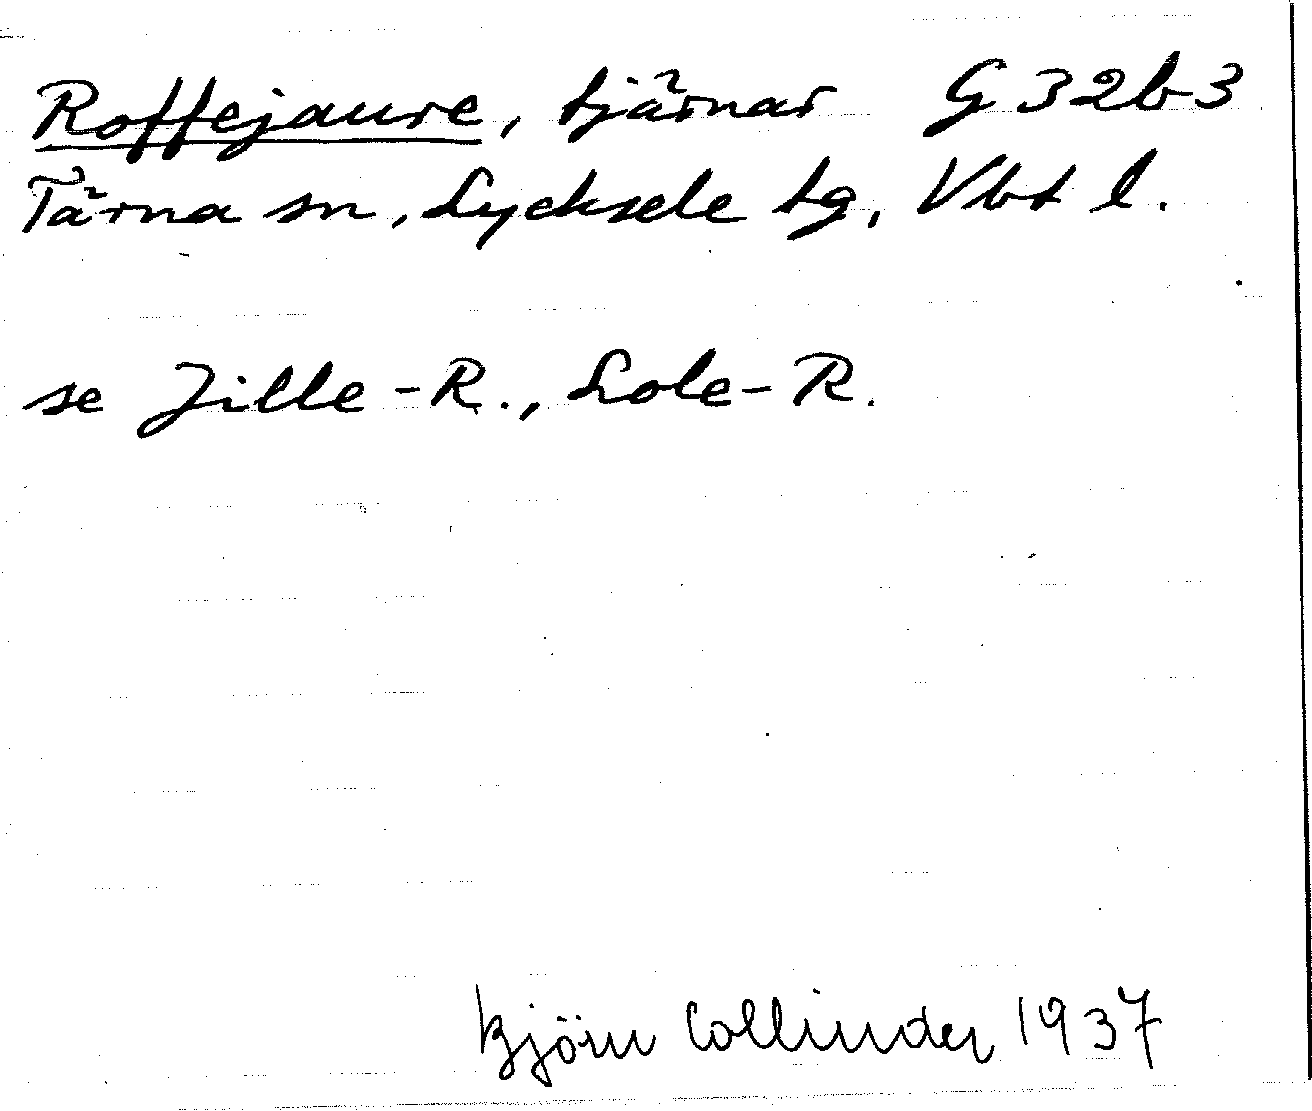 Roffejaure, tjärnar G 32b3
Tärna sn, Lycksele tg, Vbt l.
se Jille-R., Lole-R.
Björn Collinder 1937